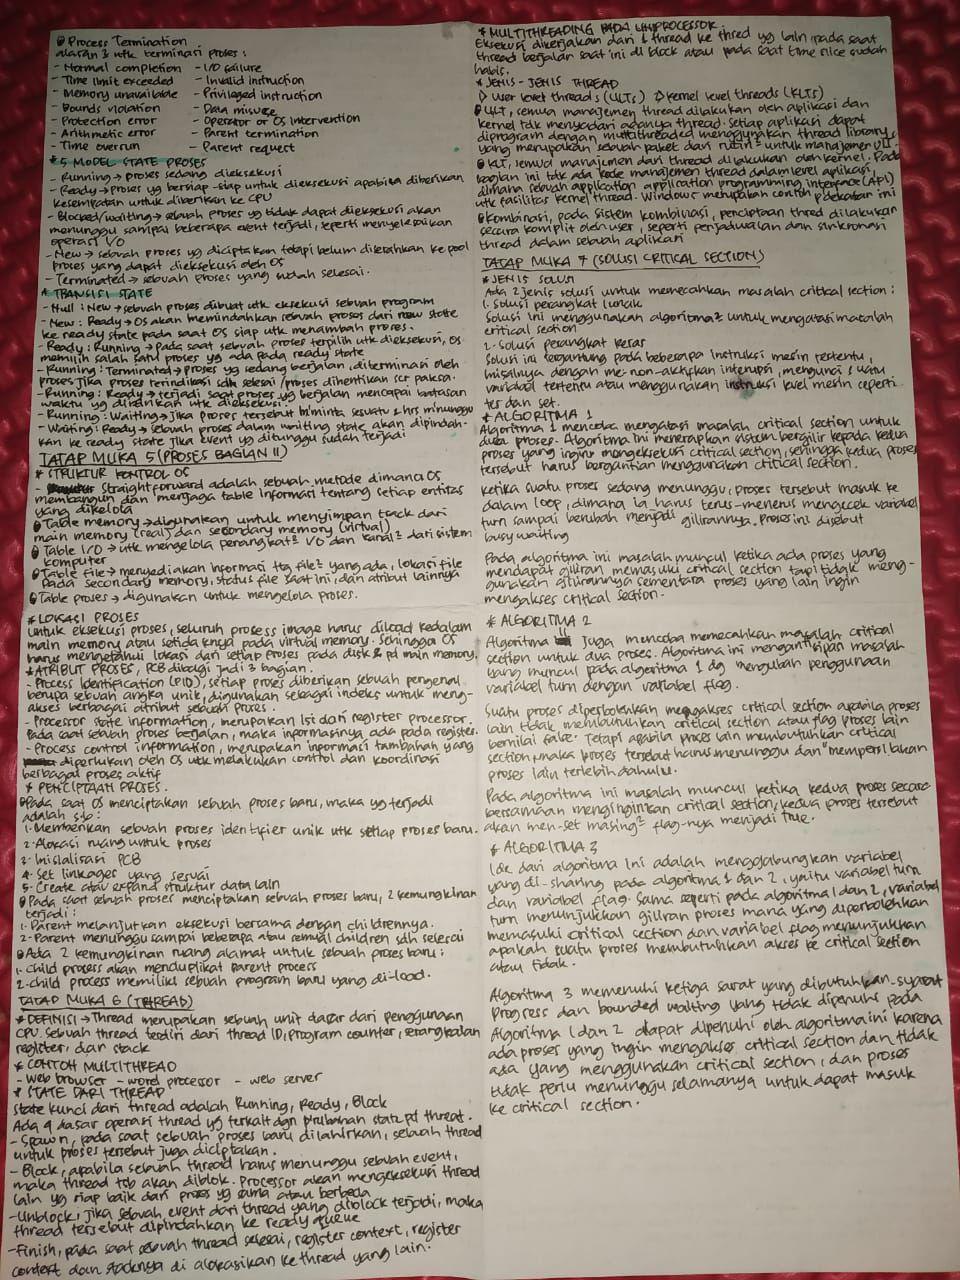 Process Termination
alasan² utk terminasi proses :
- Normal completion - I/O failure
- Time limit exceeded - Invalid instruction
- Memory unavailable - Privileged instruction
- Bounds violation - Data misuse
- Protection error - Operator or OS intervention
- Arithmetic error - Parent termination
- Time overrun - Parent request
* 5 MODEL STATE PROSES
- Running → proses sedang dieksekusi
- Ready → proses yg bersiap-siap untuk dieksekusi apabila diberikan
kesempatan untuk diberikan ke CPU
- Blocked/waiting → sebuah proses yg tidak dapat dieksekusi akan
menunggu sampai beberapa event terjadi, seperti menyelesaikan
operasi I/O
- New → sebuah proses yg diciptakan tetapi belum diserahkan ke pool
proses yang dapat dieksekusi oleh OS
- Terminated → sebuah proses yang sudah selesai.
* TRANSISI STATE
- Null : New → sebuah proses dibuat utk eksekusi sebuah program
- New : Ready → OS akan memindahkan sebuah proses dari new state
ke ready state pada saat OS siap utk menambah proses.
- Ready : Running → pada saat sebuah proses terpilih utk dieksekusi, OS
memilih salah satu proses yg ada pada ready state
- Running : Terminated → proses yg sedang berjalan, diterminasi oleh
proses jika proses terindikasi sdh selesai / proses dihentikan scr paksa.
- Running : Ready → terjadi saat proses yg berjalan mencapai batasan
waktu yg diizinkan utk dieksekusi.
- Running : Waiting → jika proses tersebut minta sesuatu & hrs menunggu
- Waiting : Ready → sebuah proses dalam waiting state akan dipindah-
kan ke ready state jika event yg ditunggu sudah terjadi
TATAP MUKA 5 (PROSES BAGIAN II)
* STRUKTUR KONTROL OS
- Straightforward adalah sebuah metode dimana OS
membangun dan menjaga table informasi tentang setiap entitas
yang dikelola
Table memory → digunakan untuk menyimpan track dari
main memory (real) dan secondary memory (virtual)
Table I/O → utk mengelola perangkat² I/O dan kanal² dari sistem
komputer
Table file → menyediakan informasi ttg file² yang ada, lokasi file
pada secondary memory, status file saat ini, dan atribut lainnya
Table proses → digunakan untuk mengelola proses.
* LOKASI PROSES
Untuk eksekusi proses, seluruh process image harus diload kedalam
main memory atau setidaknya pada virtual memory. Sehingga OS
harus mengetahui lokasi dari setiap proses pada disk & pd main memory.
* ATRIBUT PROSES, PCB dibagi jadi 3 bagian.
- Process Identification (PID), setiap proses diberikan sebuah pengenal
berupa sebuah angka unik, digunakan sebagai indeks untuk meng-
akses berbagai atribut sebuah proses.
- Processor state information, merupakan isi dari register processor.
Pada saat sebuah proses berjalan, maka informasinya ada pada register.
- Process control information, merupakan informasi tambahan yang
diperlukan oleh OS utk melakukan control dan koordinasi
berbagai proses aktif
* PENCIPTAAN PROSES.
Pada saat OS menciptakan sebuah proses baru, maka yg terjadi
adalah sbb :
1. Memberikan sebuah proses identifier unik utk setiap proses baru.
2. Alokasi ruang untuk proses
3. Inisialisasi PCB
4. Set linkages yang sesuai
5. Create atau expand struktur data lain
Pada saat sebuah proses menciptakan sebuah proses baru, 2 kemungkinan
terjadi :
1. Parent melanjutkan eksekusi bersama dengan childrennya.
2. Parent menunggu sampai beberapa atau semua children sdh selesai
Ada 2 kemungkinan ruang alamat untuk sebuah proses baru :
1. Child process akan menduplikat parent process
2. child process memiliki sebuah program baru yang di-load.
TATAP MUKA 6 (THREAD)
* DEFINISI → Thread merupakan sebuah unit dasar dari penggunaan
CPU. sebuah thread terdiri dari thread ID, program counter, serangkaian
register, dan stack
* CONTOH MULTITHREAD
- web browser - word processor - web server
* STATE DARI THREAD
State kunci dari thread adalah Running, Ready, Block
Ada 4 dasar operasi thread yg terkait dgn perubahan state pd threat.
- Spawn, pada saat sebuah proses baru dilahirkan, sebuah thread
untuk proses tersebut juga diciptakan.
- Block, apabila sebuah thread harus menunggu sebuah event,
maka thread tsb akan diblok. Processor akan mengeksekusi thread
lain yg siap baik dari proses yg sama atau berbeda
- Unblock, jika sebuah event dari thread yang diblock terjadi, maka
thread tersebut dipindahkan ke ready queue
- Finish, pada saat sebuah thread selesai, register context, register
context dan stacknya di alokasikan ke thread yang lain.
* MULTITHREADING PADA UNIPROCESSOR
Eksekusi dikerjakan dari 1 thread ke thred yg lain pada saat
thread berjalan saat ini di block atau pada saat time slice sudah
habis.
* JENIS - JENIS THREAD
▷ User level threads (ULTs) ▷ kernel level threads (KLTs)
ULT, semua manajemen thread dilakukan oleh aplikasi dan
kernel tdk menyadari adanya thread. Setiap aplikasi dapat
diprogram dengan multithreaded menggunakan thread library
yang merupakan sebuah paket dari rutin² untuk manajemen ULT.
KLT, semua manajemen dari thread dilakukan oleh kernel. Pada
bagian ini tdk ada kode manajemen thread dalam level aplikasi,
dimana sebuah application application programming interface (API)
utk fasilitas kernel thread. Windows merupakan contoh pdekatan ini
Kombinasi, pada sistem kombinasi, penciptaan thred dilakukan
secara komplit oleh user, seperti penjadwalan dan sinkronasi
thread dalam sebuah aplikasi
TATAP MUKA 7 (SOLUSI CRITICAL SECTION)
* JENIS SOLUSI
Ada 2 jenis solusi untuk memecahkan masalah critical section :
1. Solusi perangkat lunak
Solusi ini menggunakan algoritma² untuk mengatasi masalah
critical section
2. Solusi perangkat keras
Solusi ini tergantung pada beberapa instruksi mesin tertentu,
misalnya dengan me-non-aktifkan interupsi, mengunci suatu
variabel tertentu atau menggunakan instruksi level mesin ceperti
tes dan set.
* ALGORITMA 1
Algoritma 1 mencoba mengatasi masalah critical section untuk
dua proses. Algoritma ini menerapkan sistem bergilir kepada kedua
proses yang ingin mengeksekusi critical section, sehingga kedua proses
tersebut harus bergantian menggunakan critical section.
Ketika suatu proses sedang menunggu, proses tersebut masuk ke
dalam loop, dimana ia harus terus-menerus mengecek variabel
turn sampai berubah menjadi gilirannya. Proses ini disebut
busy waiting
Pada algoritma ini masalah muncul ketika ada proses yang
mendapat giliran memasuki critical section tapi tidak meng-
gunakan gilirannya sementara proses yang lain ingin
mengakses critical section.
* ALGORITMA 2
Algoritma juga mencoba memecahkan masalah critical
section untuk dua proses. Algoritma ini mengantisipasi masalah
yang muncul pada algoritma 1 dg mengubah penggunaan
variabel turn dengan variabel flag.
Suatu proses diperbolehkan mengakses critical section apabila proses
lain tidak membutuhkan critical section atau flag proses lain
bernilai false. Tetapi apabila proses lain membutuhkan critical
section, maka proses tersebut harus menunggu dan "mempersilakan
proses lain terlebih dahulu.
Pada algoritma ini masalah muncul ketika kedua proses secara
bersamaan menginginkan critical section, kedua proses tersebut
akan men-set masing² flag-nya menjadi true.
* ALGORITMA 3
Ide dari algoritma ini adalah menggabungkan variabel
yang di-sharing pada algoritma 1 dan 2, yaitu variabel turn
dan variabel flag. Sama seperti pada algoritma 1 dan 2, variabel
turn menunjukkan giliran proses mana yang diperbolehkan
memasuki critical section dan variabel flag menunjukkan
apakah suatu proses membutuhkan akses ke critical section
atau tidak.
Algoritma 3 memenuhi ketiga sarat yang dibutuhkan. syarat
Progress dan bounded waiting yang tidak dipenuhi pada
Algoritma 1 dan 2 dapat dipenuhi oleh algoritma ini karena
ada proses yang ingin mengakses critical section dan tidak
ada yang menggunakan critical section, dan proses
tidak perlu menunggu selamanya untuk dapat masuk
ke critical section.